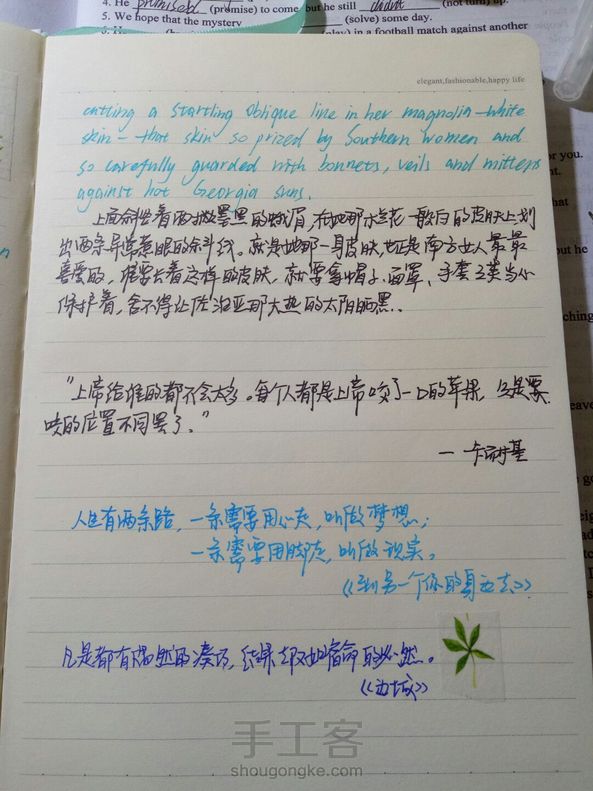 4. He promised (promise) to come but he still didnt (not turn) up.
5. We hope that the mystery (solve) some day.
(play) in a football match against another
elegant,fashionable,happy life
cutting a startling oblique line in her magnolia-white
skin - that skin so prized by Southern women and
so carefully guarded with bonnets, veils and mittens
against hot Georgia suns.
上面斜竖着两撇墨黑的蛾眉,在她那木兰花一般白的皮肤上划
出两条异常惹眼的斜线。就是她那一身皮肤,也是南方女人最最
喜爱的,谁要长着这样的皮肤,就要拿帽子、面罩、手套之类当心
保护着,舍不得让佐治亚那大热的太阳晒黑..
“上帝给谁的都不会太多。每个人都是上帝咬了一口的苹果,只是
咬的位置不同罢了。”
— 卡耐基
人生有两条路,一条需要用心走,叫做梦想;
一条需要用脚走,叫做现实。
《到另一个你的身边去》
凡是都有偶然的凑巧,结果却又如宿命的必然。
《边城》
手工客
shougongke.com
you.
but he
ching
eave
to go